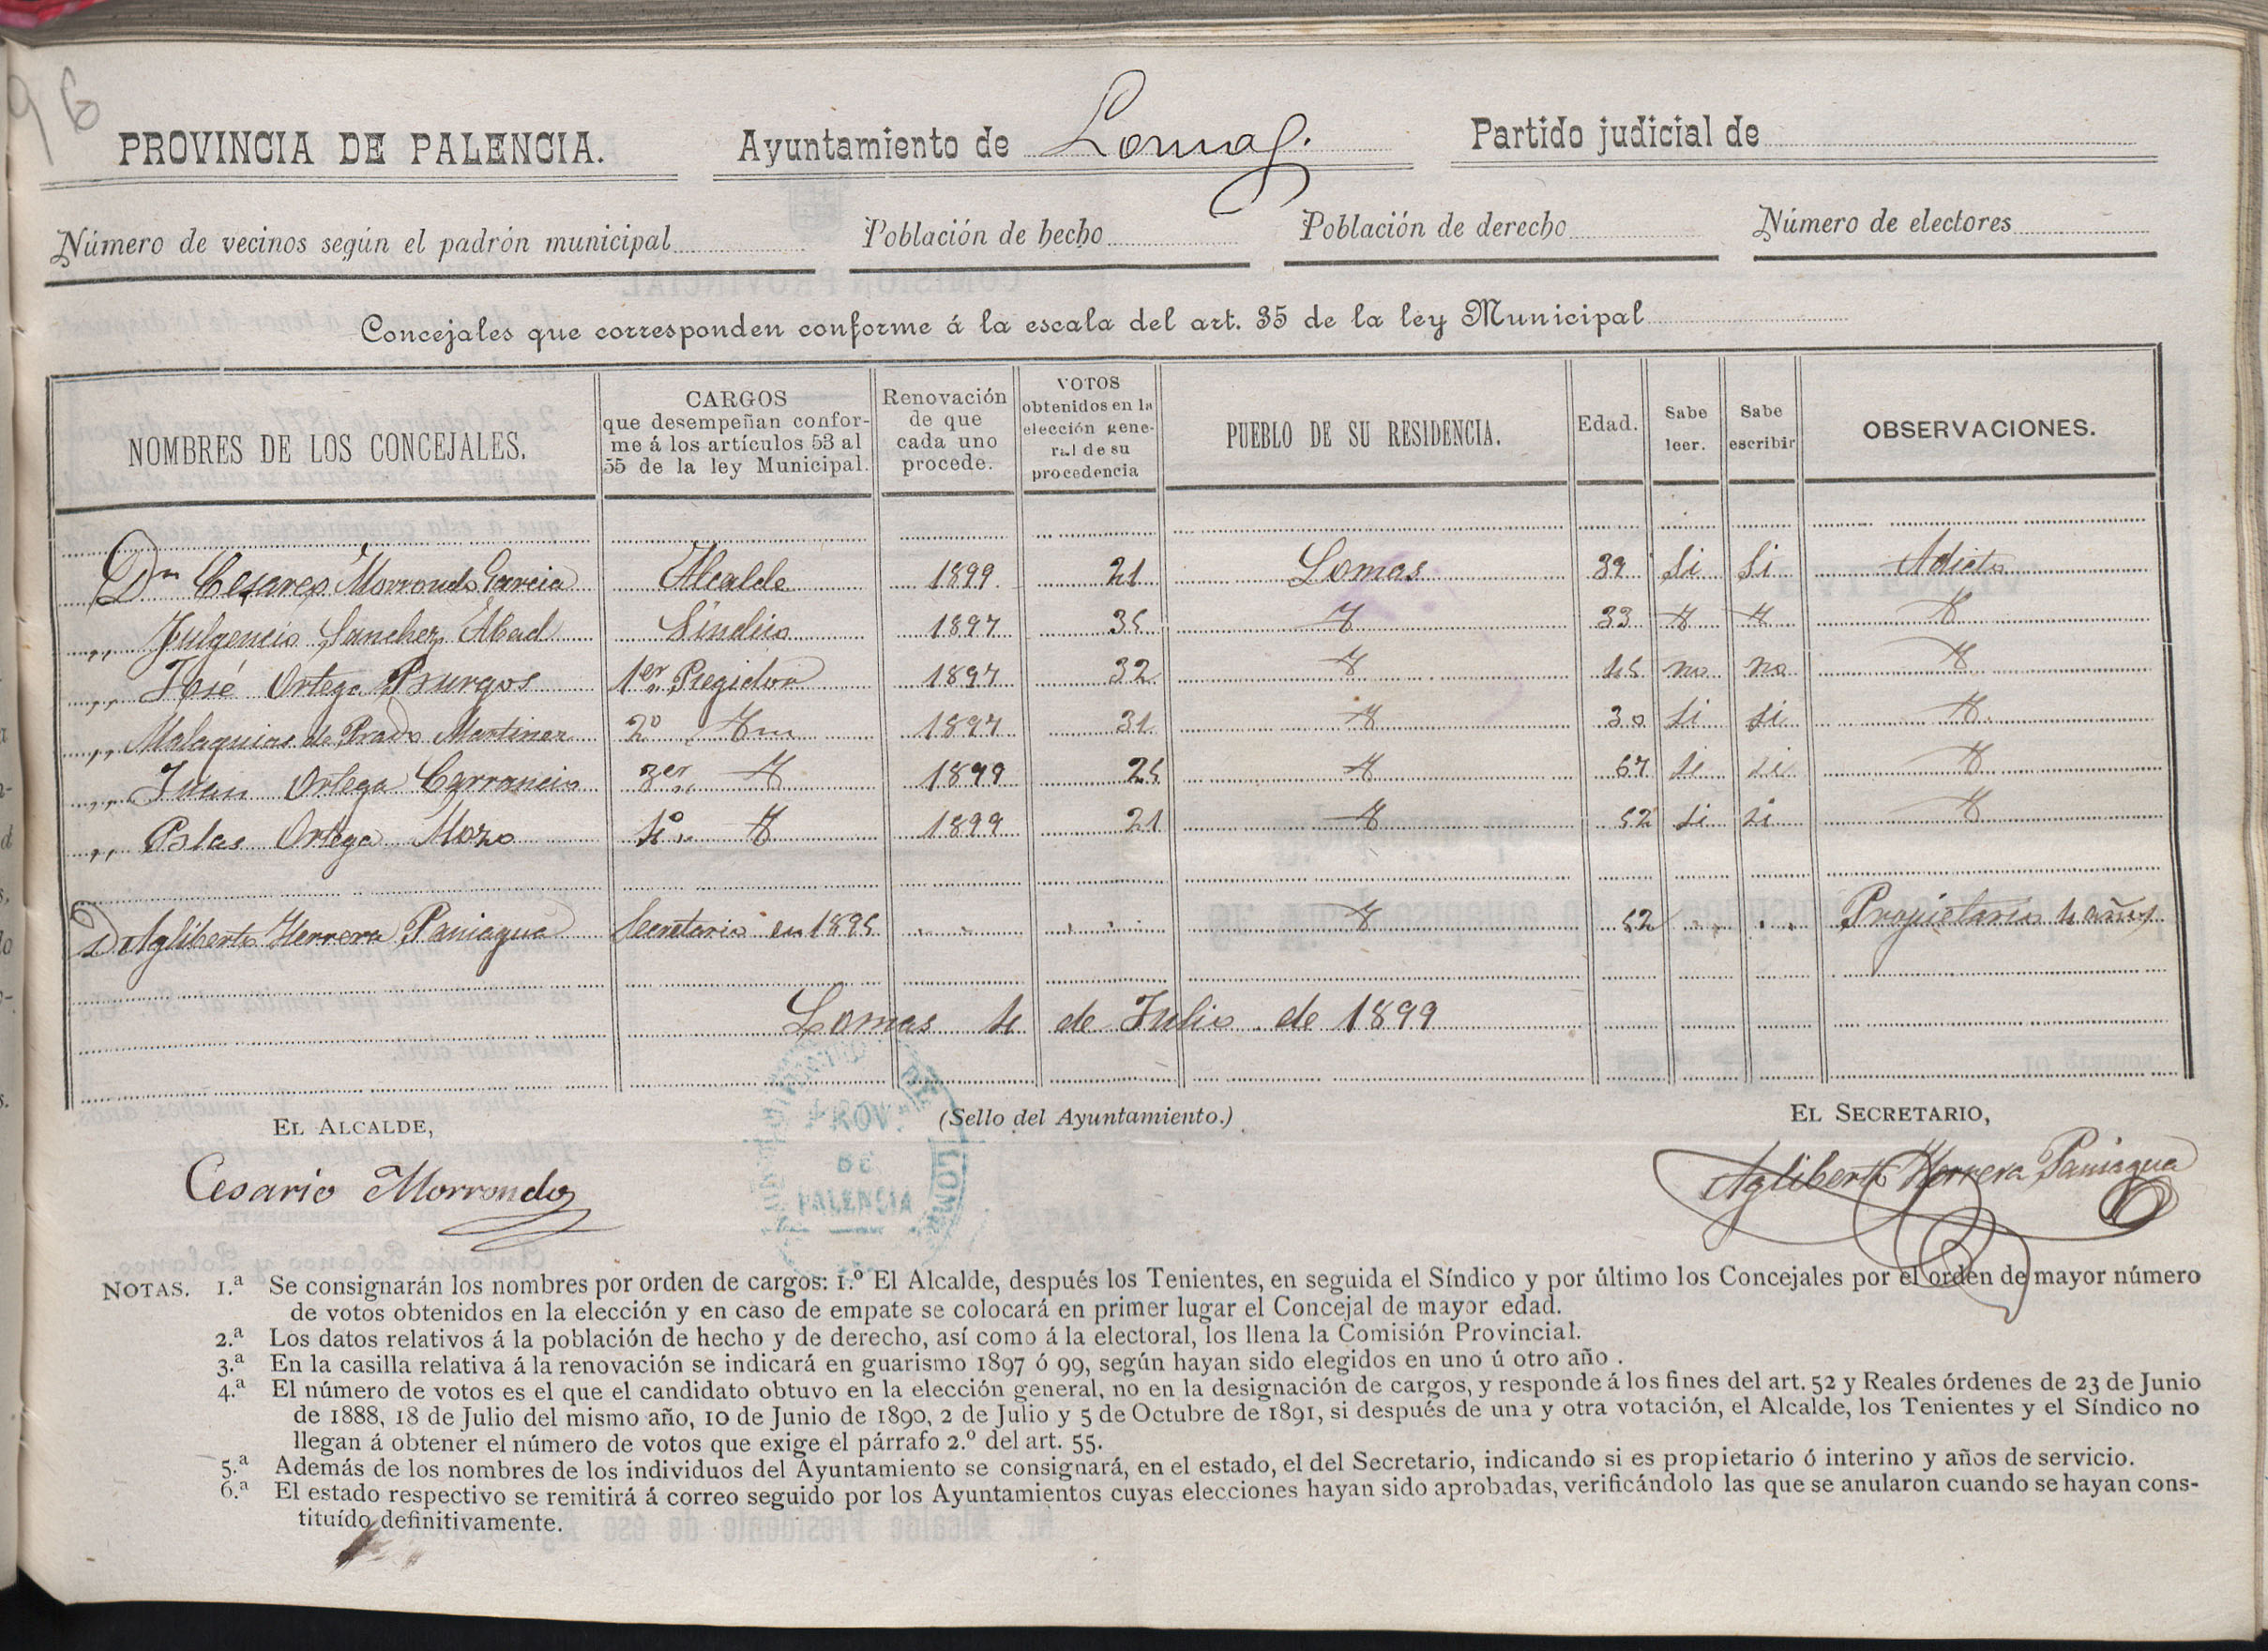 96
PROVINCIA DE PALENCIA. Ayuntamiento de Lomas. Partido judicial de
Número de vecinos según el padrón municipal Población de hecho Población de derecho Número de electores
Concejales que corresponden conforme á la escala del art. 35 de la ley Municipal
NOMBRES DE LOS CONCEJALES. CARGOS que desempeñan confor- me á los artículos 53 al 55 de la ley Municipal. Renovación de que cada uno procede. VOTOS obtenidos en la elección gene- ral de su procedencia PUEBLO DE SU RESIDENCIA. Edad. Sabe leer. Sabe escribir OBSERVACIONES.
Dn Cesareo Morrondo Garcia Alcalde 1899 21 Lomas 39 Si Si Adicto
,, Fulgencio Sanchez Abad Sindico 1897 35 33
,, José Ortega Burgos 1er Regidor 1897 32 45 no no
,, Malaquias de Prado Martinez 2º 1897 31 30 Si Si
,, Juan Ortega Carrancio 3er 1899 25 67 Si Si
,, Blas Ortega Mozo 4º 1899 21 52 Si Si
D Agliberto Herrera Paniagua Secretario en 1895 52 Propietario 4 años
Lomas 4 de Julio de 1899
EL ALCALDE, (Sello del Ayuntamiento.) EL SECRETARIO,
Cesario Morrondo Agliberto Herrera Paniagua
PROV. DE PALENCIA
NOTAS. 1.ª Se consignarán los nombres por orden de cargos: 1.º El Alcalde, después los Tenientes, en seguida el Síndico y por último los Concejales por el orden de mayor número
de votos obtenidos en la elección y en caso de empate se colocará en primer lugar el Concejal de mayor edad.
2.ª Los datos relativos á la población de hecho y de derecho, así como á la electoral, los llena la Comisión Provincial.
3.ª En la casilla relativa á la renovación se indicará en guarismo 1897 ó 99, según hayan sido elegidos en uno ú otro año.
4.ª El número de votos es el que el candidato obtuvo en la elección general, no en la designación de cargos, y responde á los fines del art. 52 y Reales órdenes de 23 de Junio
de 1888, 18 de Julio del mismo año, 10 de Junio de 1890, 2 de Julio y 5 de Octubre de 1891, si después de una y otra votación, el Alcalde, los Tenientes y el Síndico no
llegan á obtener el número de votos que exige el párrafo 2.º del art. 55.
5.ª Además de los nombres de los individuos del Ayuntamiento se consignará, en el estado, el del Secretario, indicando si es propietario ó interino y años de servicio.
6.ª El estado respectivo se remitirá á correo seguido por los Ayuntamientos cuyas elecciones hayan sido aprobadas, verificándolo las que se anularon cuando se hayan cons-
tituído definitivamente.